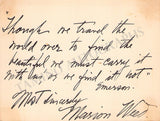 Though we travel the
world over to find the
beautiful we must carry it
with us, or we find it not
Emerson.
Most sincerely
Marion Weed